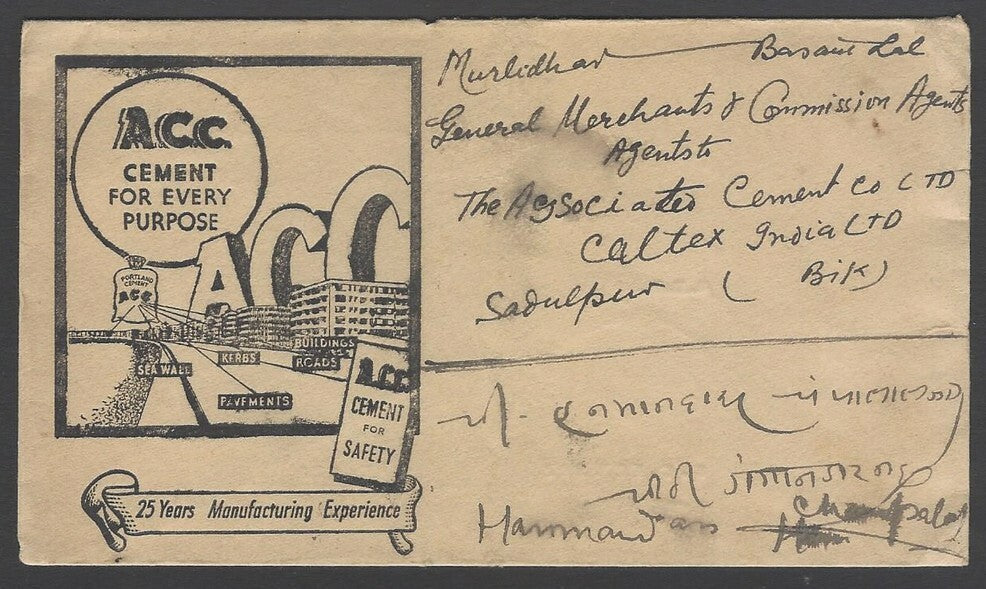 A.C.C.
CEMENT
FOR EVERY
PURPOSE
ACC
PORTLAND
CEMENT
ACC
BUILDINGS
KERBS
ROADS
SEA WALL
PAVEMENTS
A.C.C.
CEMENT
FOR
SAFETY
25 Years Manufacturing Experience
Murlidhar Basant Lal
General Merchants & Commission Agents
Agents to
The Associated Cement Co LTD
Caltex India LTD
Sadulpur ( Bik )